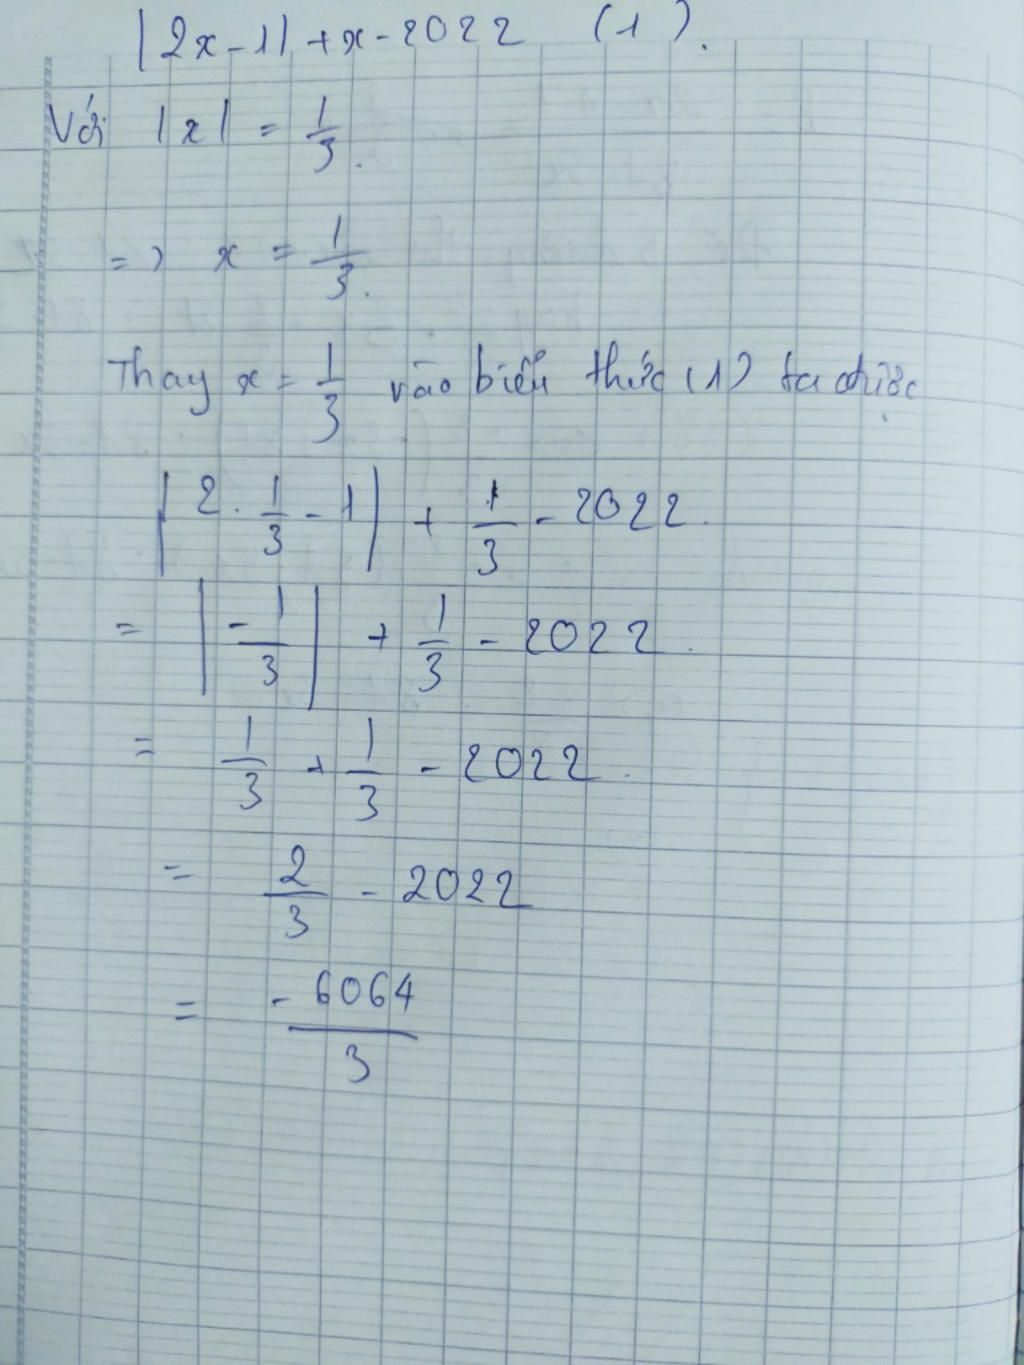 |2x-1| + x - 2022 (1).
Với |x| = 1/3.
=> x = 1/3.
Thay x = 1/3 vào biển thức (1) ta được
|2. 1/3 - 1| + 1/3 - 2022.
= |-1/3| + 1/3 - 2022.
= 1/3 + 1/3 - 2022.
= 2/3 - 2022
= -6064/3